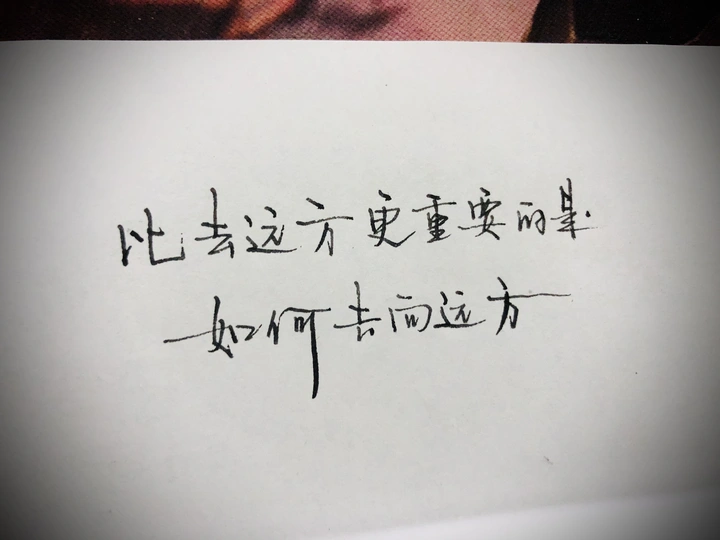 比去远方更重要的是
如何去向远方